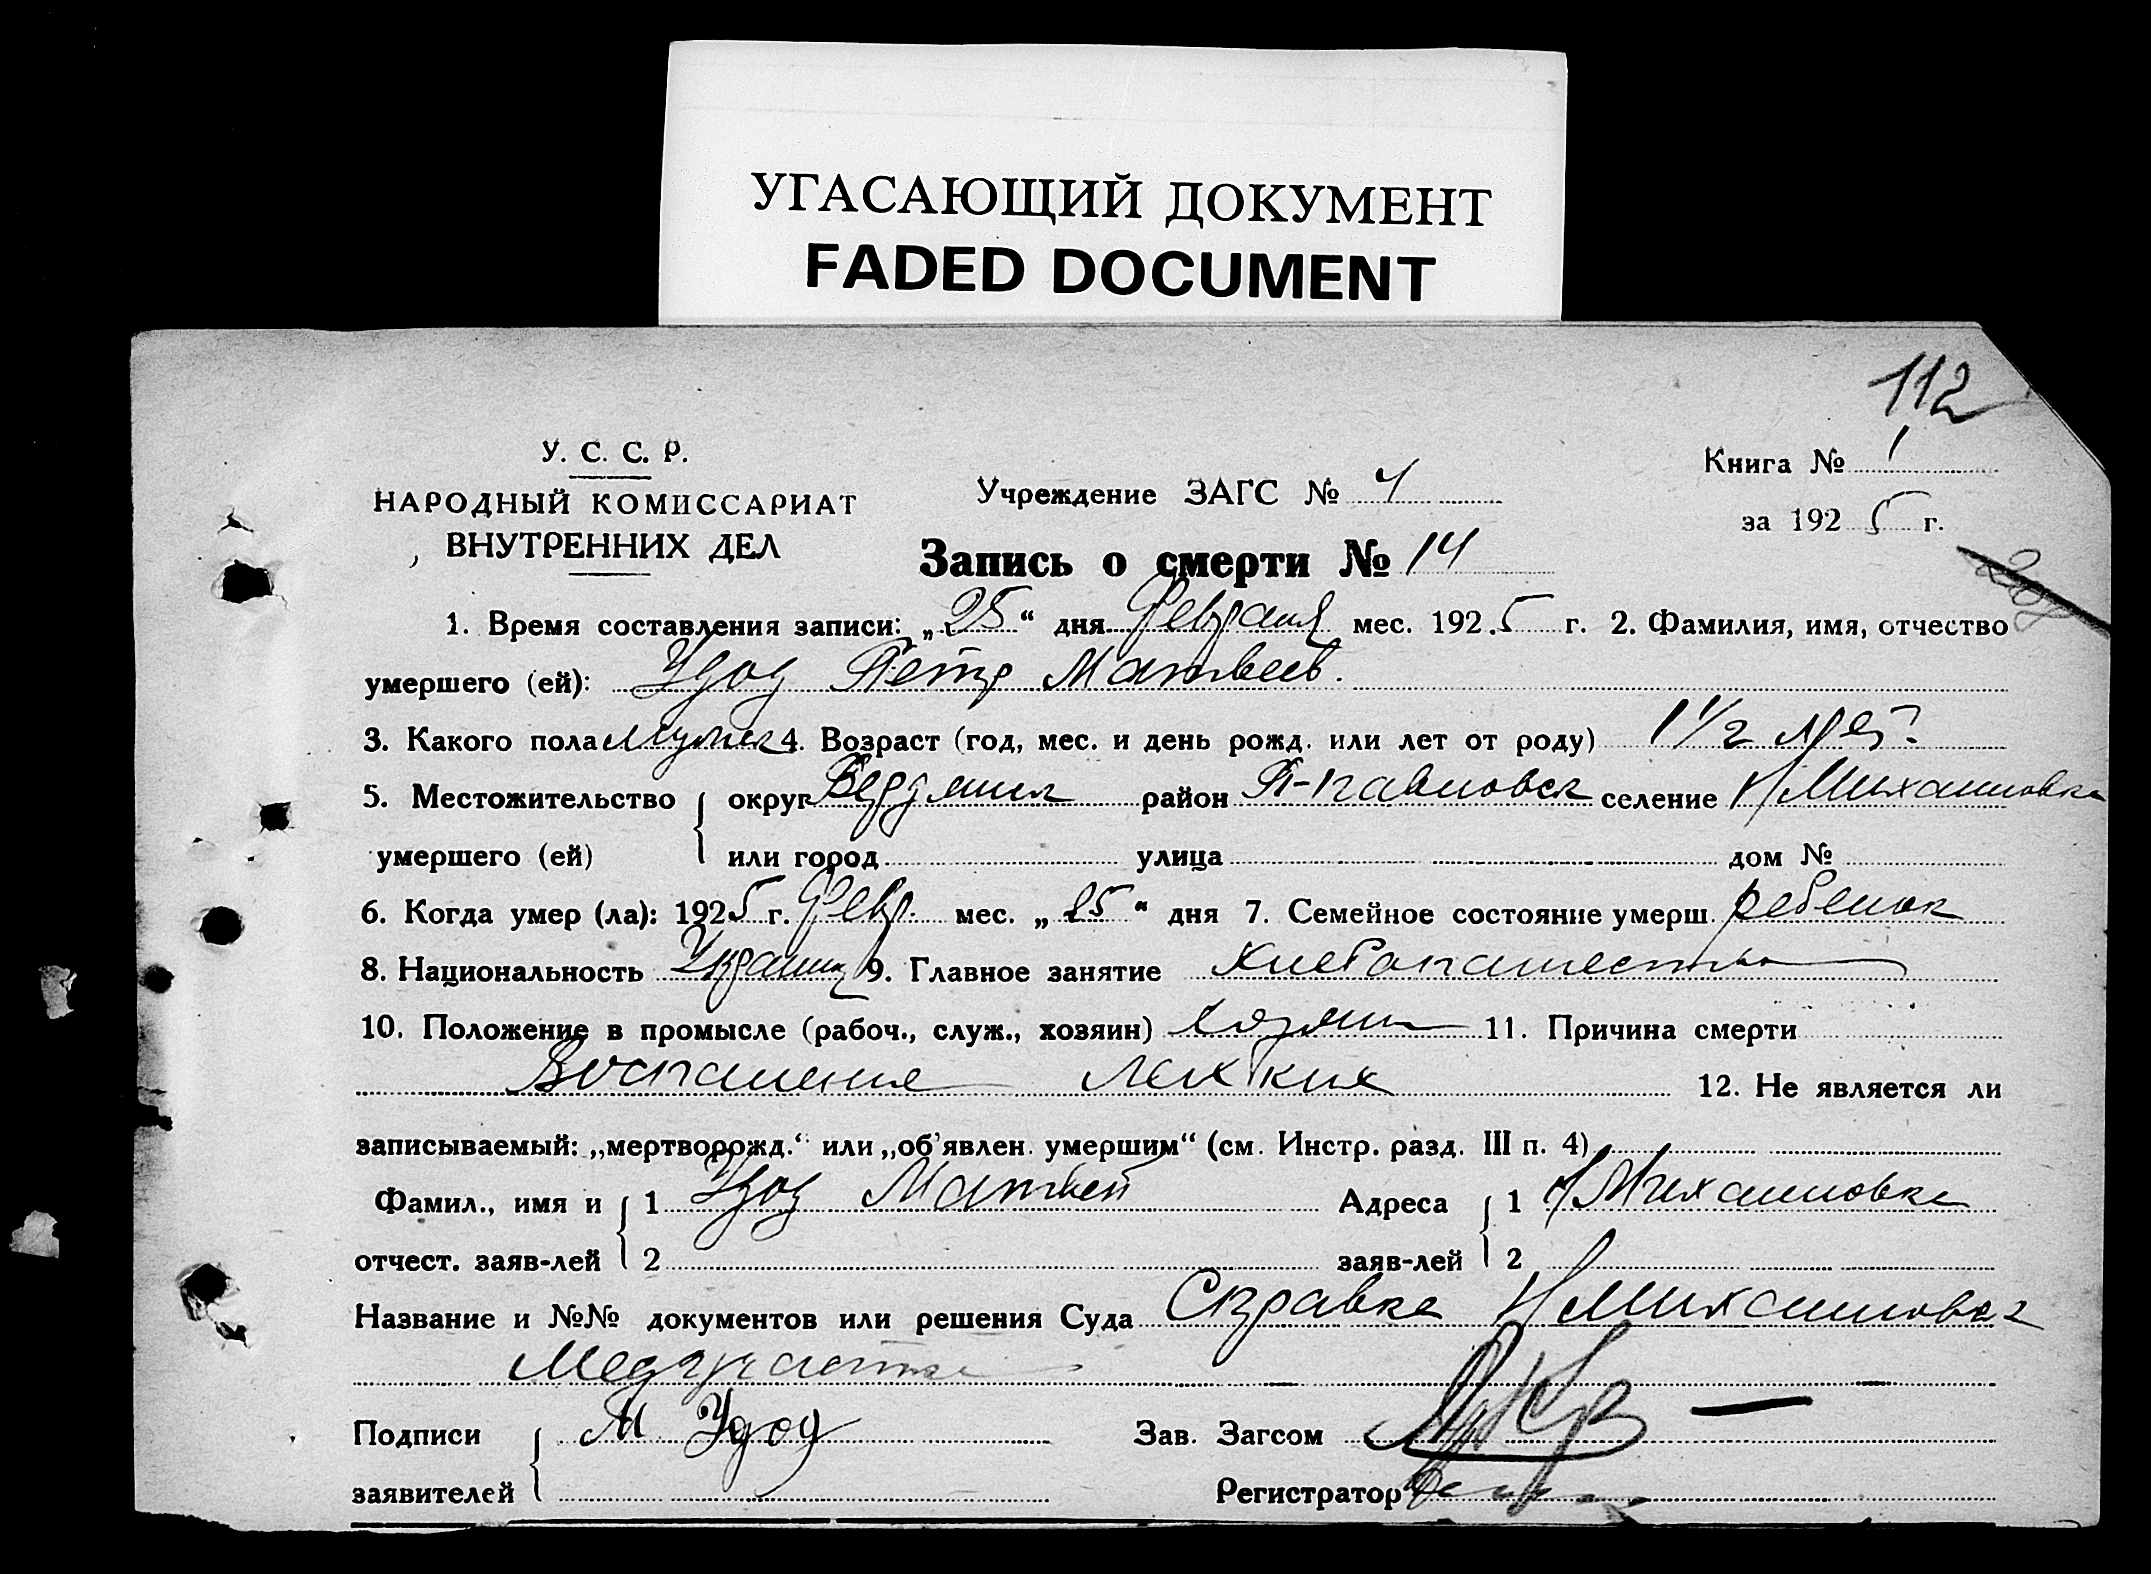 УГАСАЮЩИЙ ДОКУМЕНТ
FADED DOCUMENT
112
У. С. С. Р.
НАРОДНЫЙ КОМИССАРИАТ
ВНУТРЕННИХ ДЕЛ
Учреждение ЗАГС № 4
Книга № 1
за 1925 г.
Запись о смерти № 14
1. Время составления записи: „25“ дня Февраля мес. 1925 г. 2. Фамилия, имя, отчество
умершего (ей): Удод Петр Матвеев.
3. Какого пола мужск 4. Возраст (год, мес. и день рожд. или лет от роду) 1 1/2
5. Местожительство округ Бердянск район П-павловск селение Н Михайловка
умершего (ей) или город улица дом №
6. Когда умер (ла): 1925 г. Февр. мес. „25“ дня 7. Семейное состояние умерш. ребенок
8. Национальность Украин 9. Главное занятие хлебопашество
10. Положение в промысле (рабоч., служ., хозяин) хозяин 11. Причина смерти
Воспаление легких 12. Не является ли
записываемый: „мертворожд.“ или „об'явлен. умершим“ (см. Инстр. разд. III п. 4)
Фамил., имя и 1 Удод Матвей Адреса 1 Н Михайловка
отчест. заяв-лей 2 заяв-лей 2
Название и №№ документов или решения Суда Справка Н Михайловск
Медучастка
Подписи М Удод Зав. Загсом
заявителей Регистратор